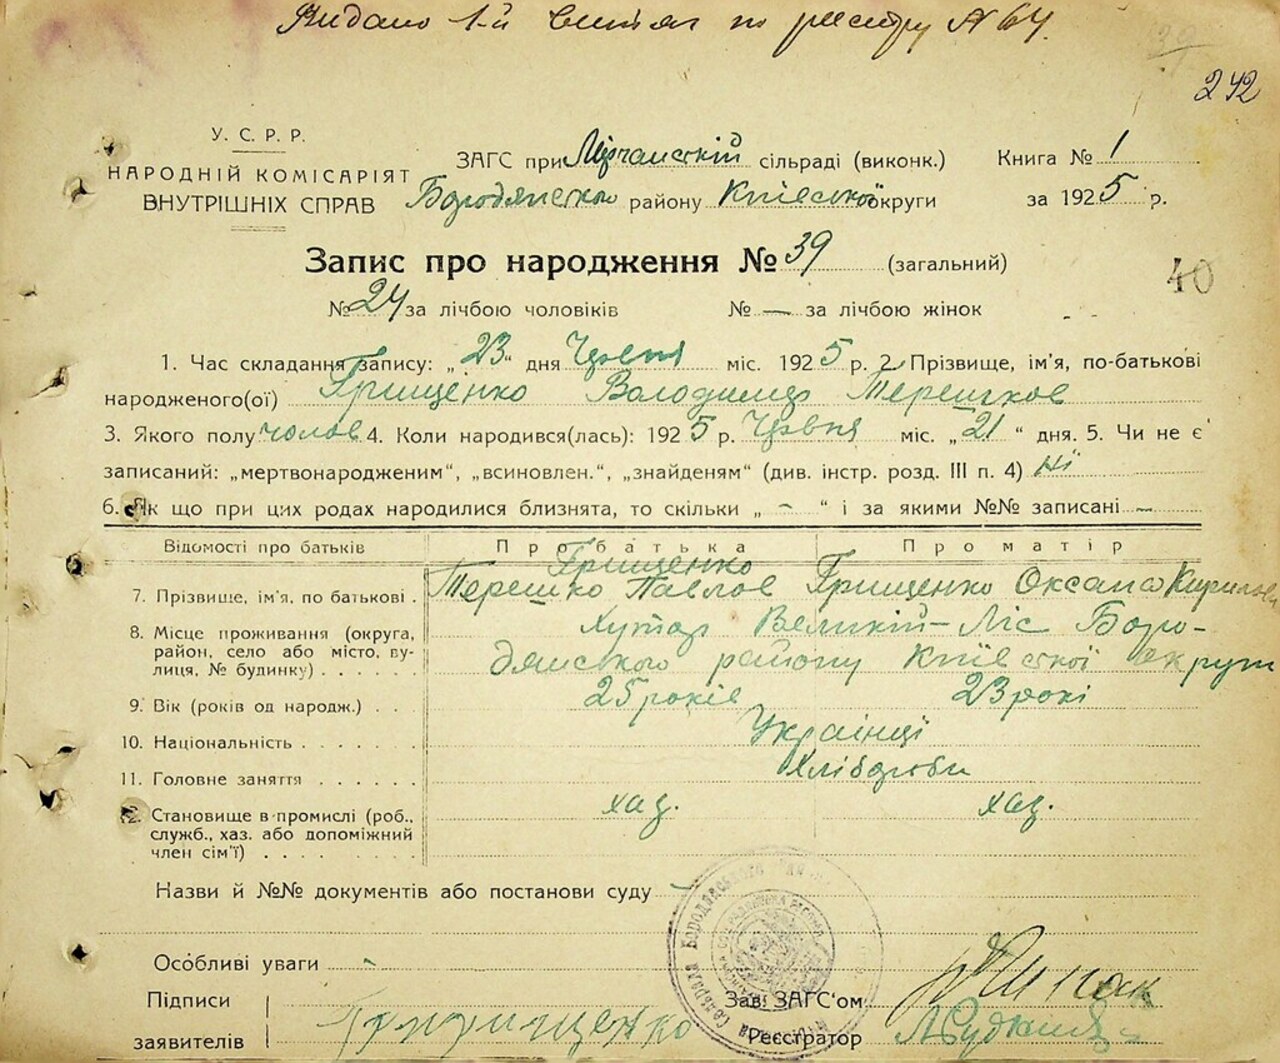 Видано 1-й витяг по реєстру №64.
242
У. С. Р. Р.
НАРОДНІЙ КОМІСАРІЯТ
ВНУТРІШНІХ СПРАВ
ЗАГС при Мірчанській сільраді (виконк.) Книга № 1
Бородянского району Київської округи за 1925 р.
Запис про народження № 39 (загальний)
40
№ 24 за лічбою чоловіків № — за лічбою жінок
1. Час складання запису: „23“ дня Червня міс. 1925 р. 2. Прізвище, ім'я, по-батькові
народженого(ої) Грищенко Володимир Терешков
3. Якого полу чолов 4. Коли народився(лась): 1925 р. Червня міс. „21“ дня. 5. Чи не є
записаний: „мертвонародженим“, „всиновлен.“, „знайденям“ (див. інстр. розд. III п. 4) Ні
6. Як що при цих родах народилися близнята, то скільки „ – “ і за якими №№ записані –
Відомості про батьків Про батька Про матір
7. Прізвище, ім'я, по батькові . Грищенко Терешко Павлов Грищенко Оксана Кирилова
8. Місце проживання (округа, район, село або місто, вулиця, № будинку) . . . . . Хутор Великій-Ліс Боро-
дянського району Київської округи
9. Вік (років од народж.) . . . 25 років 23 рокі
10. Національність . . . . . . . Українці
11. Головне заняття . . . . . . Хлібороби
12. Становище в промислі (роб.,
служб., хаз. або допоміжний
член сім'ї) . . . . хаз. хаз.
Назви й №№ документів або постанови суду –
Особливі уваги –
Підписи
заявителів Грищенко
Зав. ЗАГС'ом
Реєстратор